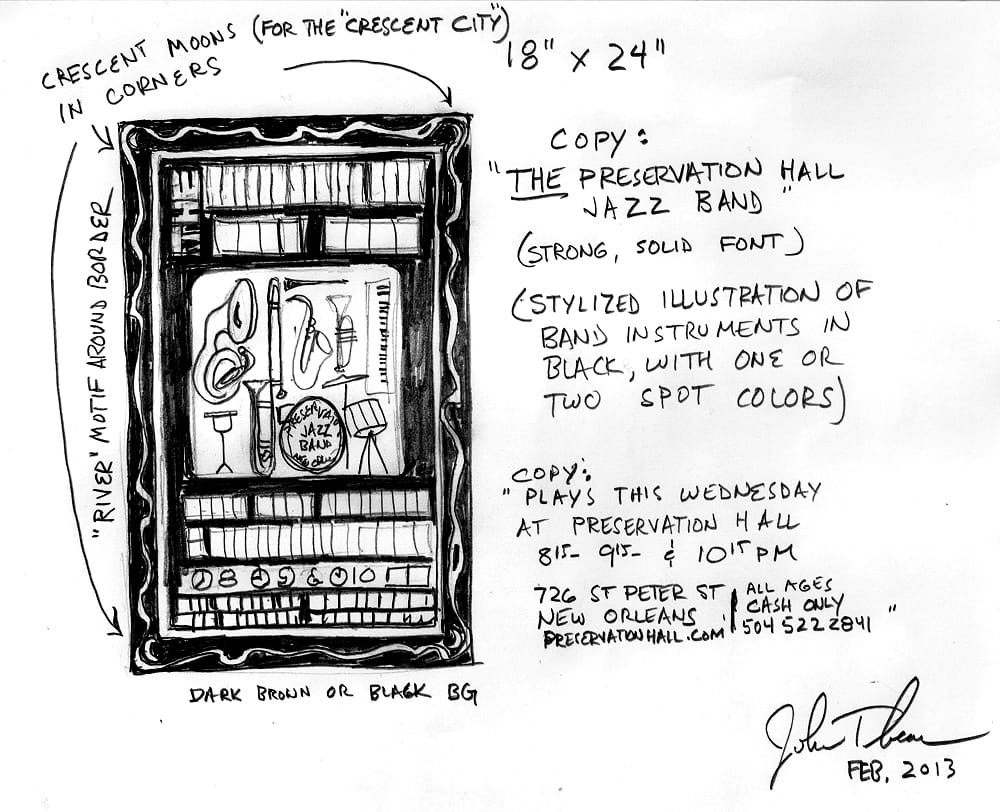 CRESCENT MOONS (FOR THE "CRESCENT CITY")
IN CORNERS
18" X 24"
"RIVER" MOTIF AROUND BORDER
THE
PRESERVATION
JAZZ
BAND
NEW ORL
8 9 & 10
DARK BROWN OR BLACK BG
COPY:
"THE PRESERVATION HALL
JAZZ BAND"
(STRONG, SOLID FONT)
(STYLIZED ILLUSTRATION OF
BAND INSTRUMENTS IN
BLACK, WITH ONE OR
TWO SPOT COLORS)
COPY:
"PLAYS THIS WEDNESDAY
AT PRESERVATION HALL
815- 915- & 1015 PM
726 ST PETER ST
NEW ORLEANS
PRESERVATIONHALL.COM
ALL AGES
CASH ONLY
504 522 2841"
John
FEB, 2013